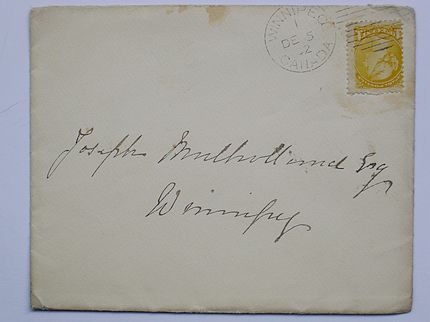 WINNIPEG
1
DE 5
CANADA
Joseph Mulholland Esq
Winnipeg